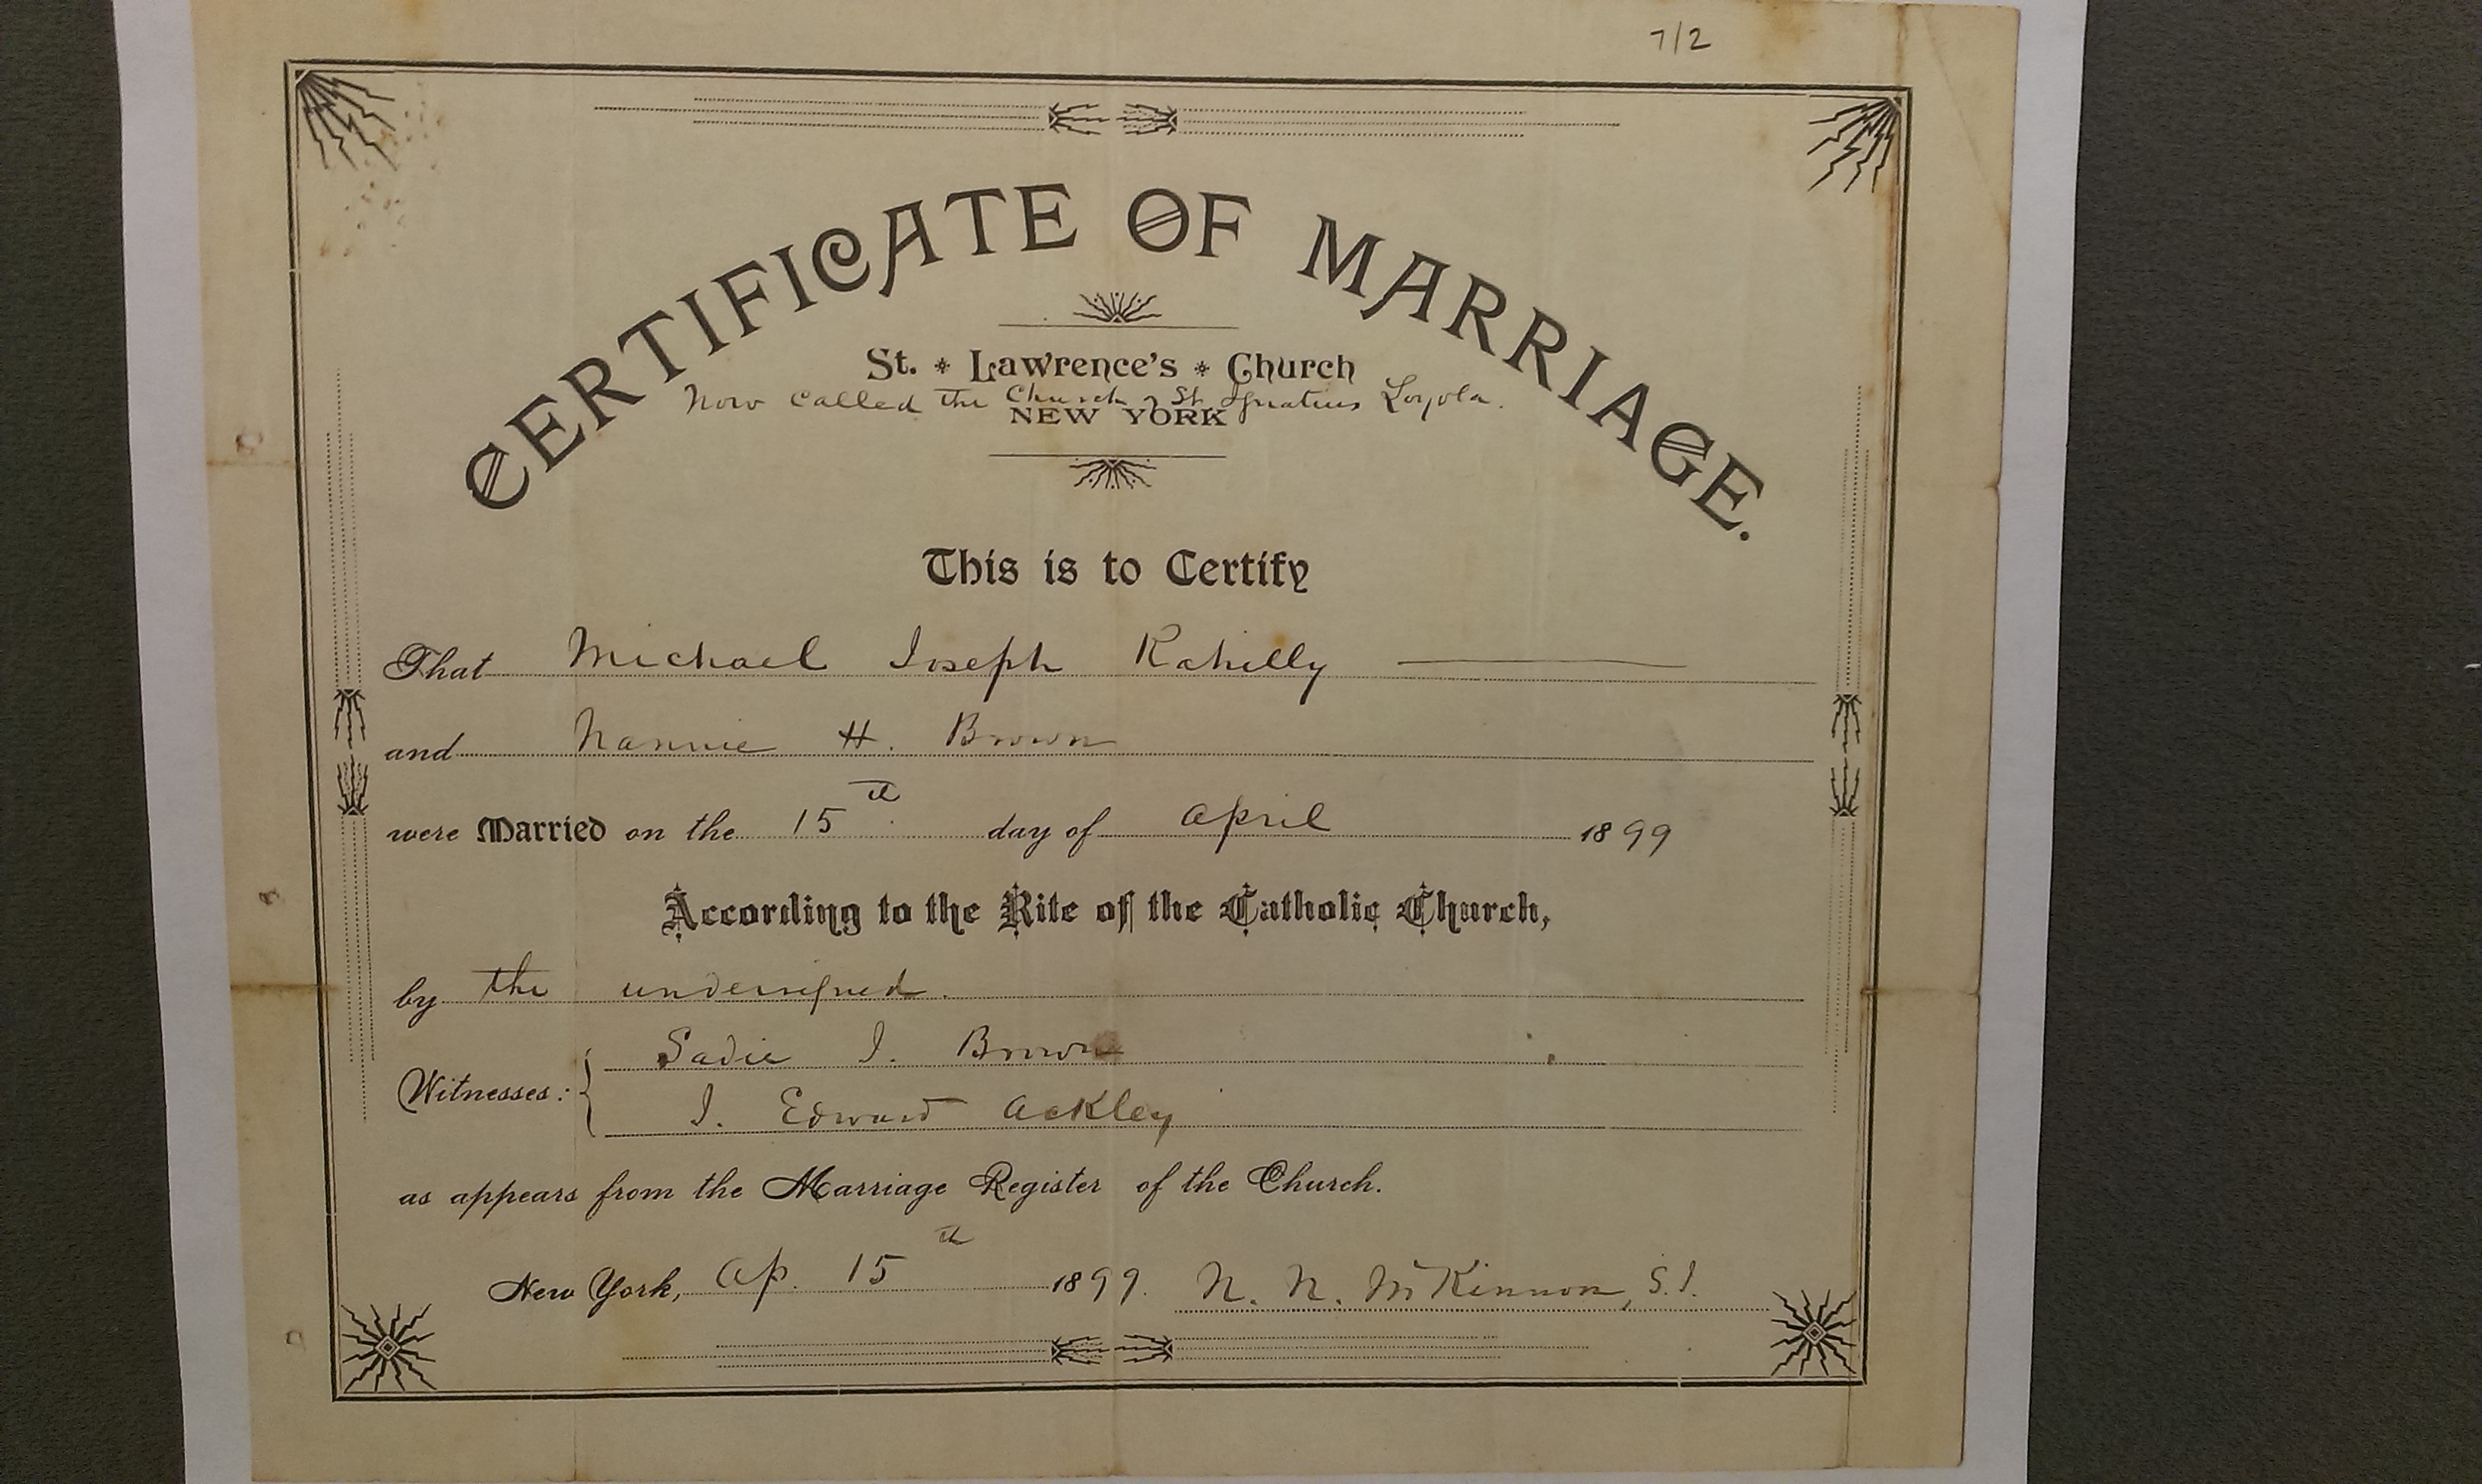 7/2
CERTIFICATE OF MARRIAGE.
St. Lawrence's Church
Now called the Church of St. Ignatius Loyola.
NEW YORK
This is to Certify
That Michael Joseph Rahilly
and Nannie H. Brown
were Married on the 15th day of April 1899
According to the Rite of the Catholic Church,
by the undersigned.
Witnesses: Sadie J. Brown
J. Edward Ackley
as appears from the Marriage Register of the Church.
New York, Ap. 15th 1899. N. N. McKinnon, S.J.